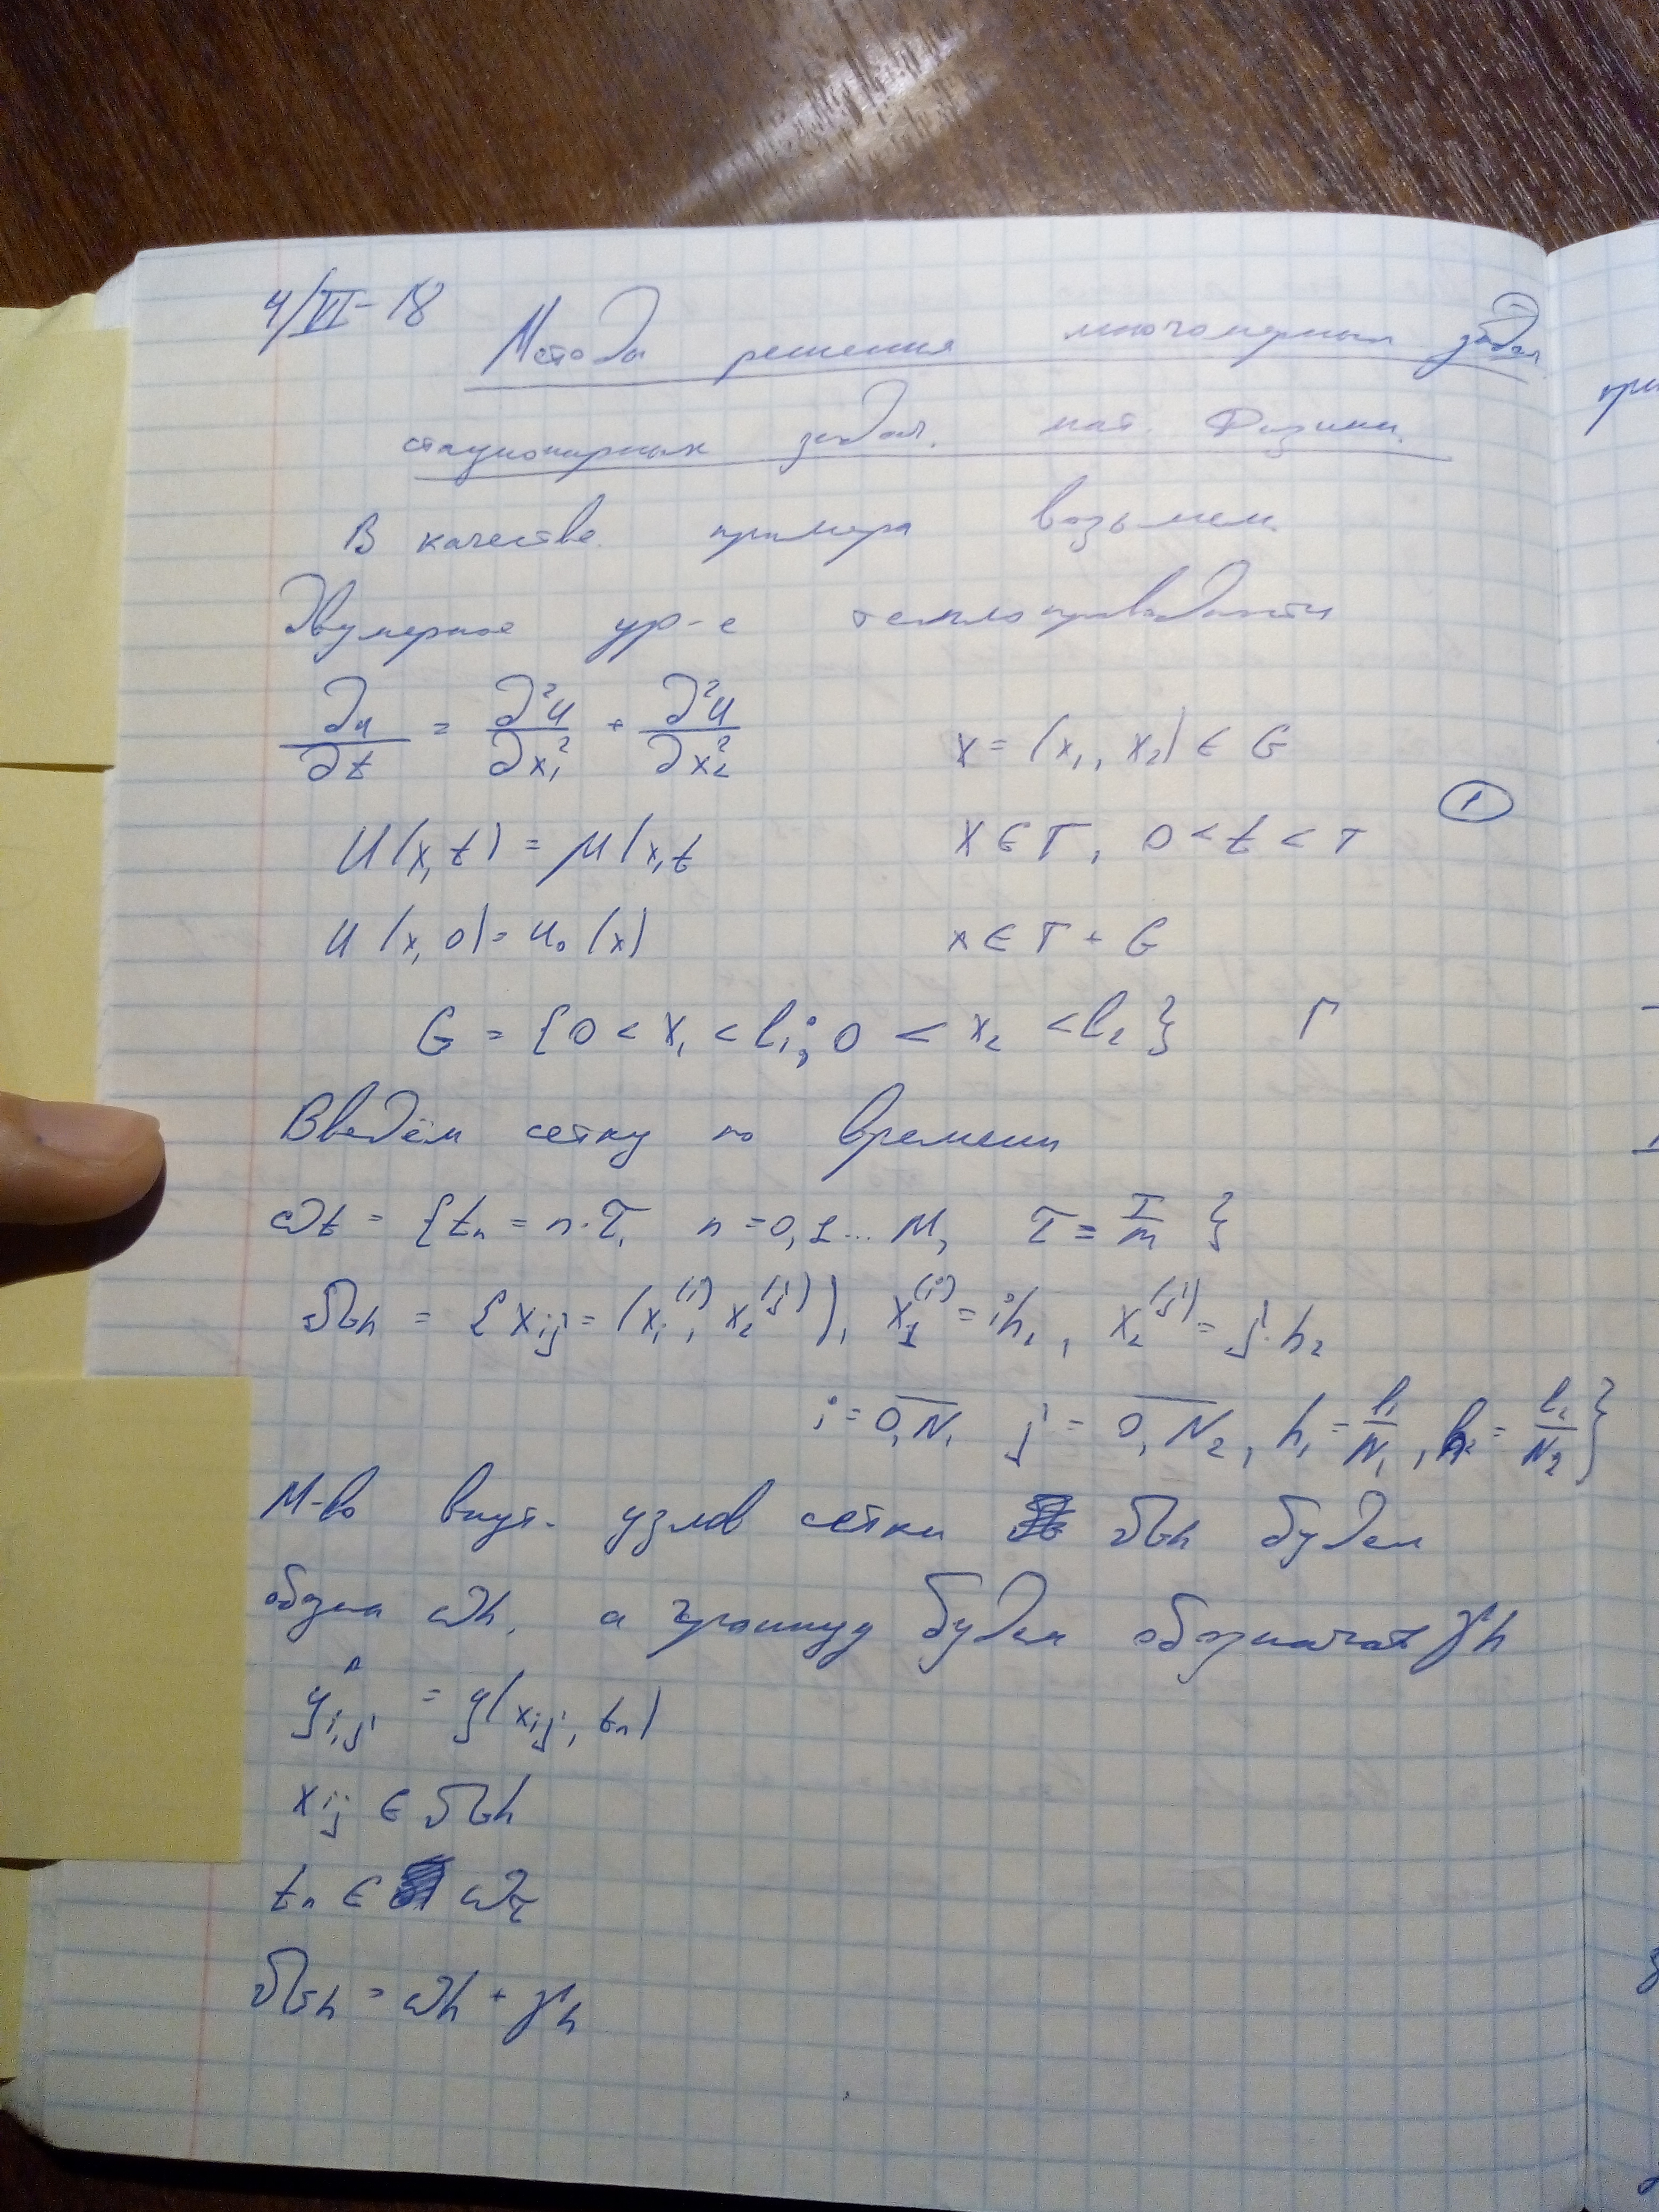 4/VI-18
Методы решения многомерных задач
стационарных задач. мат. Физики.
В качестве примера возьмем
Двумерное ур-е теплопроводности
∂u/∂t = ∂²u/∂x₁² + ∂²u/∂x₂² x = (x₁, x₂) ∈ G
①
u(x,t) = μ(x,t x ∈ Г, 0 < t < T
u(x,0) = u₀(x) x ∈ Г + G
G = {0 < x₁ < l₁; 0 < x₂ < l₂} Г
Введём сетку по времени
ωt = {tn = n·τ, n = 0,1... M, τ = T/m }
Ωh = {xij = (x₁⁽ⁱ⁾, x₂⁽ʲ⁾), x₁⁽ⁱ⁾ = ih₁, x₂⁽ʲ⁾ = j·h₂
i = 0,N₁ j = 0,N₂, h₁ = l₁/N₁, h₂ = l₂/N₂}
М-во внут. узлов сетки Ωh будем
обозн ωh, а границу будем обозначат γh
yⁿi,j = y(xij, tn)
xij ∈ Ωh
tn ∈ ωτ
Ωh = ωh + γh